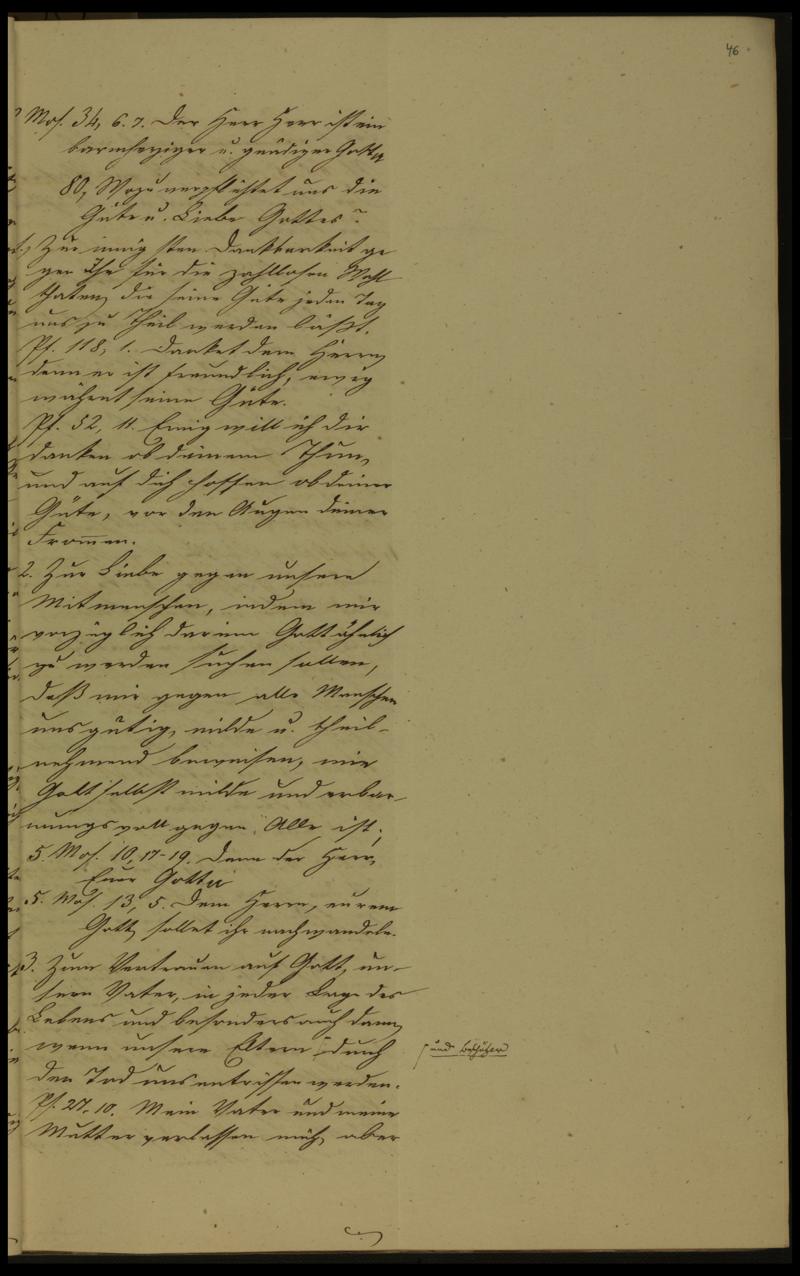 46
Mos. 34, 6. 7. Der Herr Herr ist ein
barmherziger u. gnädiger Gott
80, Wozu verpflichtet uns die
Güte u. Liebe Gottes?
1, Zur innigsten Dankbarkeit ge
gen Ihn für die zahllosen Wohl
thaten, die seine Güte jeden Tag
uns zu Theil werden läßt.
Ps. 118, 1. Danket dem Herrn,
denn er ist freundlich, ewig
währet seine Güte.
Ps. 52, 11. Ewig will ich dir
danken ob deinem Thun,
und auf dich hoffen ob deiner
Güte, vor den Augen deiner
Frommen.
2. Zur Liebe gegen unsere
Mitmenschen, indem wir
vorzüglich darinn Gott ähnlich
zu werden suchen sollen,
daß wir gegen alle Menschen
uns gütig, milde u. theil-
nehmend beweisen, wie
Gott selbst milde und erbar-
mungsvoll gegen Alle ist;
5. Mos. 10, 17-19. Denn der Herr,
Euer Gott
5. Mos. 13, 5. Dem Herrn, eurem
Gott, sollet ihr nachwandeln.
3. Zum Vertrauen auf Gott, un-
sern Vater, in jeder Lage des
Lebens und besonders auch dann,
wenn unsere Eltern durch
und Beschützer
den Tod uns entrissen werden.
Ps. 27, 10. Mein Vater und meine
Mutter verlassen mich, aber